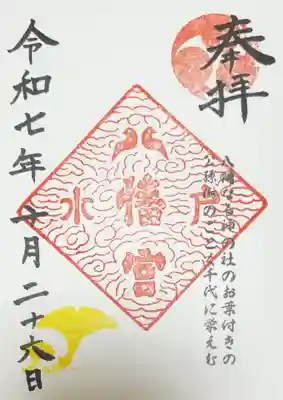 奉拝
八幡なる神の社のお葉付きの
公孫樹のごとく千代に栄えむ
水戸
八幡宮
令和七年十月二十六日